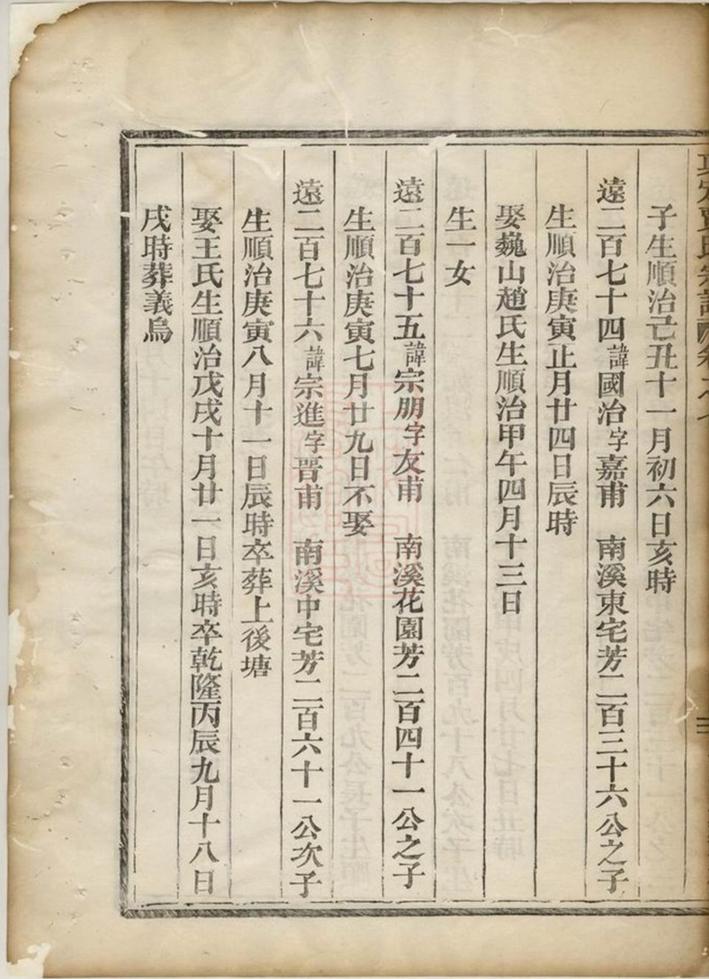 子生順治己丑十一月初六日亥時
遠二百七十四諱國治字嘉甫　南溪東宅芳二百三十六公之子
生順治庚寅正月廿四日辰時
娶巍山趙氏生順治甲午四月十三日
生一女
遠二百七十五諱宗朋字友甫　南溪花園芳二百四十一公之子
生順治庚寅七月廿九日不娶
遠二百七十六諱宗進字晋甫　南溪中宅芳二百六十一公次子
生順治庚寅八月十一日辰時卒葬上後塘
娶王氏生順治戊戌十月廿一日亥時卒乾隆丙辰九月十八日
戌時葬義烏